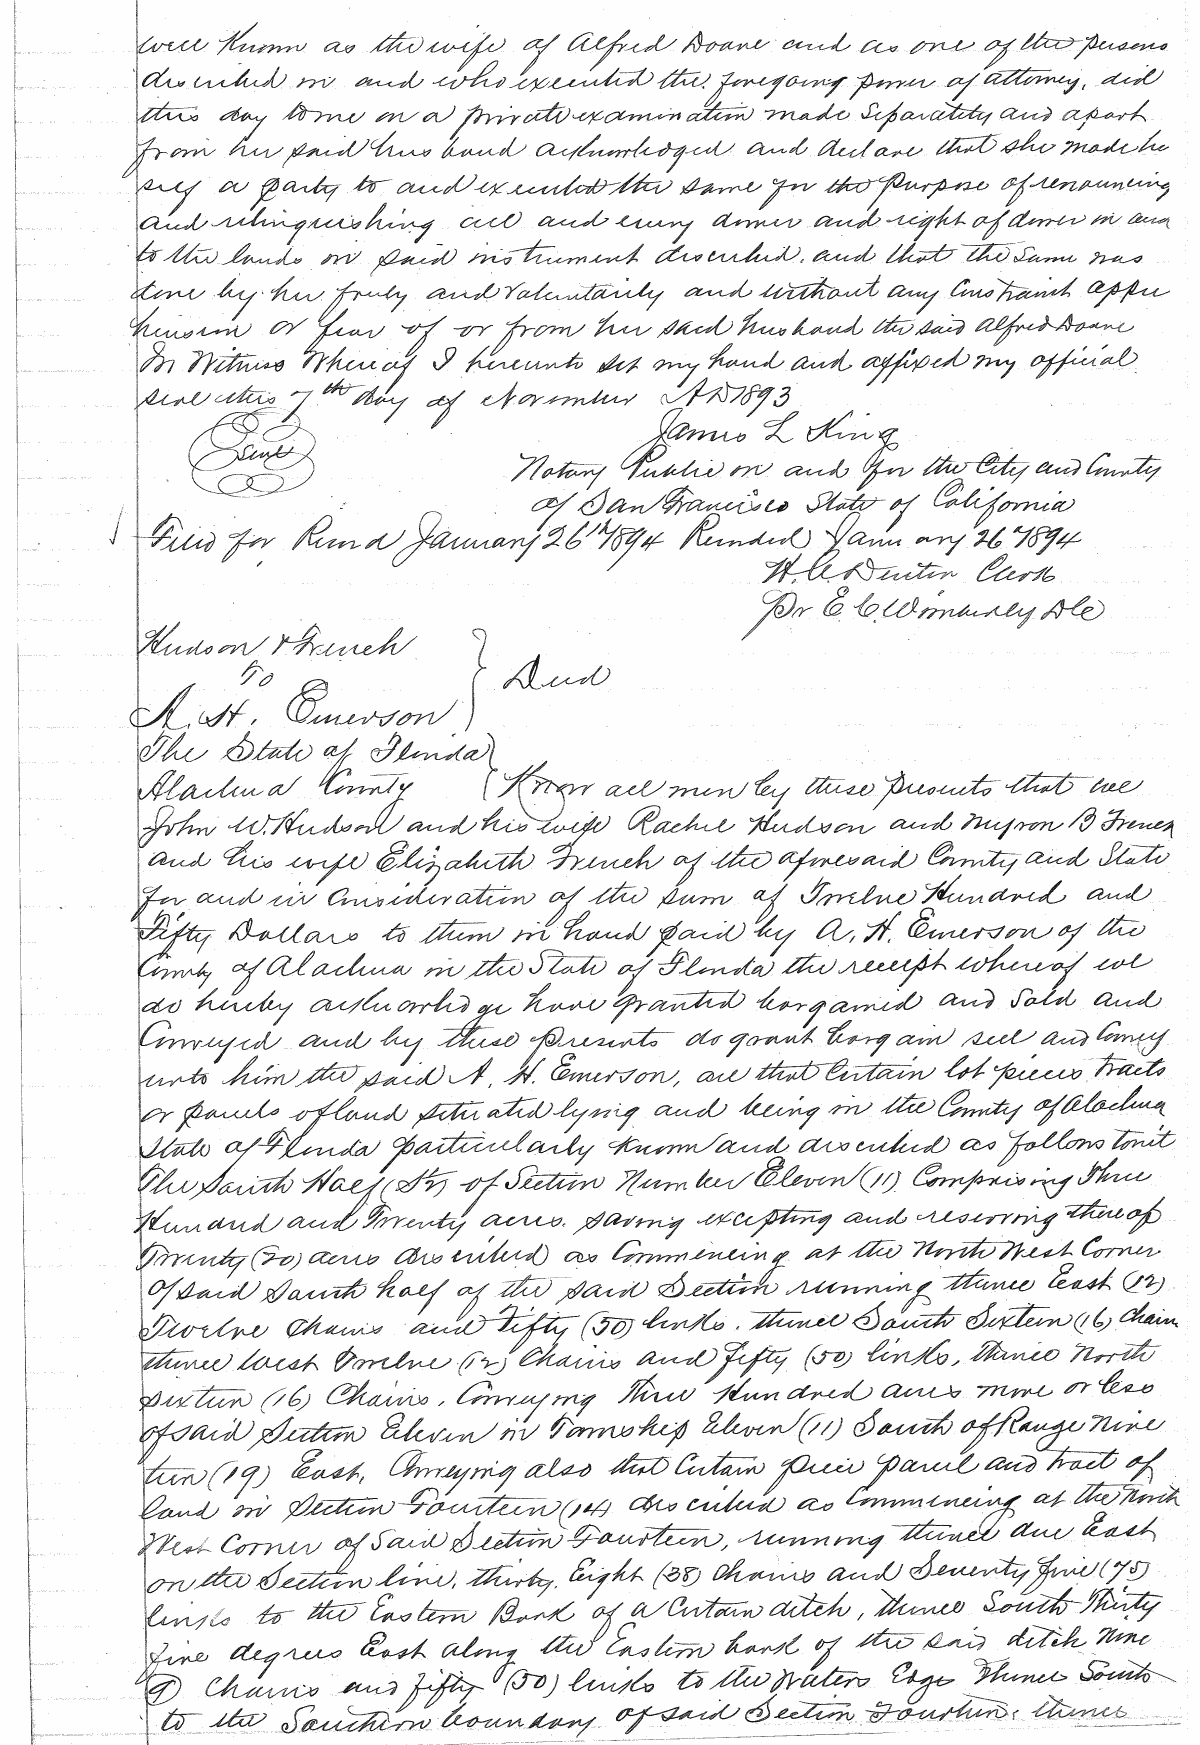 well Known as the wife of Alfred Doane and as one of the persons
described in and who executed the foregoing power of attorney, did
this day to me on a private examination made Separately and apart
from her said husband acknowledged and declare that she made her
self a party to and executed the same for the Purpose of renouncing
and relinquishing all and every dower and right of dower in and
to the lands in said instrument described, and that the Same was
done by her freely and Voluntarily and without any Constraint appre
hension or fear of or from her said husband the said Alfred Doane
In Witness Whereof I hereunto set my hand and affixed my official
seal this 7th day of November AD 1893
James L King
Seal
Notary Public in and for the City and County
of San Francisco State of California
Filed for Record January 26th 1894 Recorded January 26th 1894
Clerk
Pr E. C. Wimberly DC
Hudson & French
To
Deed
A. H. Emerson
The State of Florida
Alachua County Know all men by these Presents that we
John W. Hudson and his wife Rachel Hudson and Myron B French
and his wife Elizabeth French of the aforesaid County and State
for and in Consideration of the sum of Twelve Hundred and
Fifty Dollars to them in hand paid by A. H. Emerson of the
County of Alachua in the State of Florida the receipt whereof we
do hereby acknowledge have granted bargained and Sold and
Conveyed and by these presents do grant bargain sell and Convey
unto him the said A. H. Emerson, all that Certain lot pieces tracts
or parcels of land situated lying and being in the County of Alachua
State of Florida particularly known and described as follows towit
The South Half (S½) of Section Number Eleven (11) Comprising Three
Hundred and Twenty acres. saving excepting and reserving thereof
Twenty (20) acres described as Commencing at the North West Corner
of said South half of the said Section running thence East (12)
Twelve Chains and Fifty (50) links. thence South Sixteen (16) Chains
thence West Twelve (12) Chains and Fifty (50) links, thence North
sixteen (16) Chains. Conveying Three Hundred acres more or less
of said Section Eleven in Township Eleven (11) South of Range Nine
teen (19) East, Conveying also that Certain piece parcel and tract of
land in Section Fourteen (14) described as Commencing at the North
West Corner of Said Section Fourteen, running thence due East
on the Section line, thirty Eight (38) Chains and Seventy five (75)
links to the Eastern Bank of a Certain ditch, thence South Thirty
five degrees East along the Eastern bank of the said ditch Nine
9) Chains and fifty (50) links to the Waters Edge Thence South
to the Southern boundary of said Section Fourteen, thence